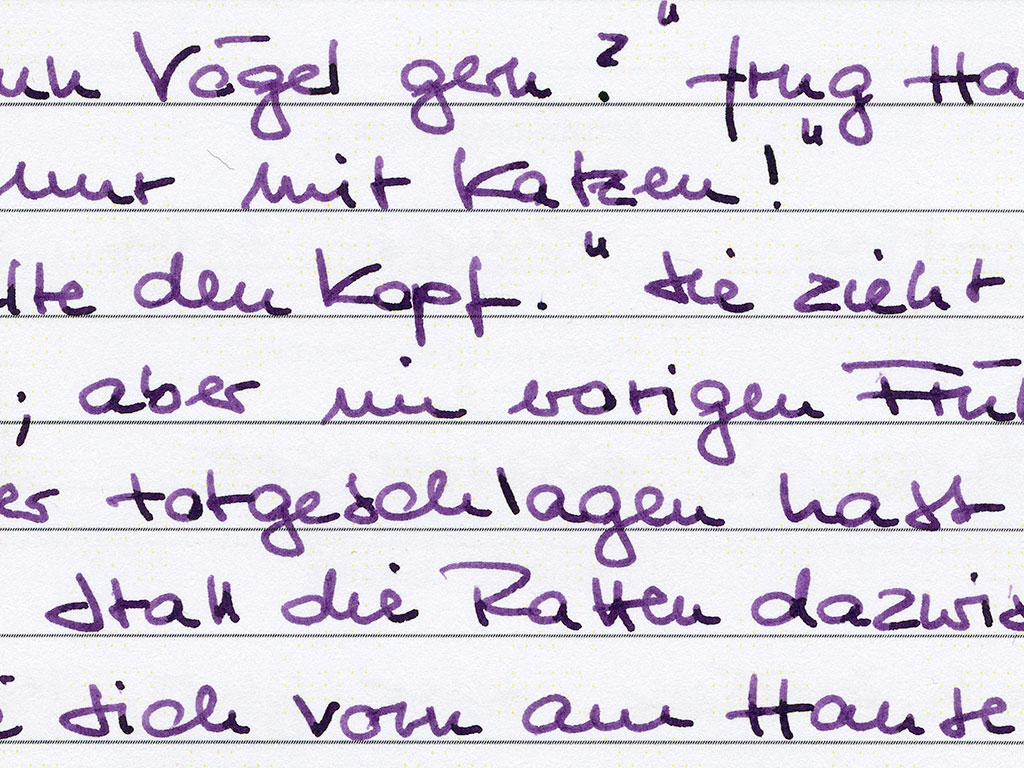 Vögel gern?" frug Ha
nur mit Katzen!"
lte den Kopf. "die zieht
; aber im vorigen Früh
er totgeschlagen hast
Stall die Ratten dazwis
sich vorn am Hause